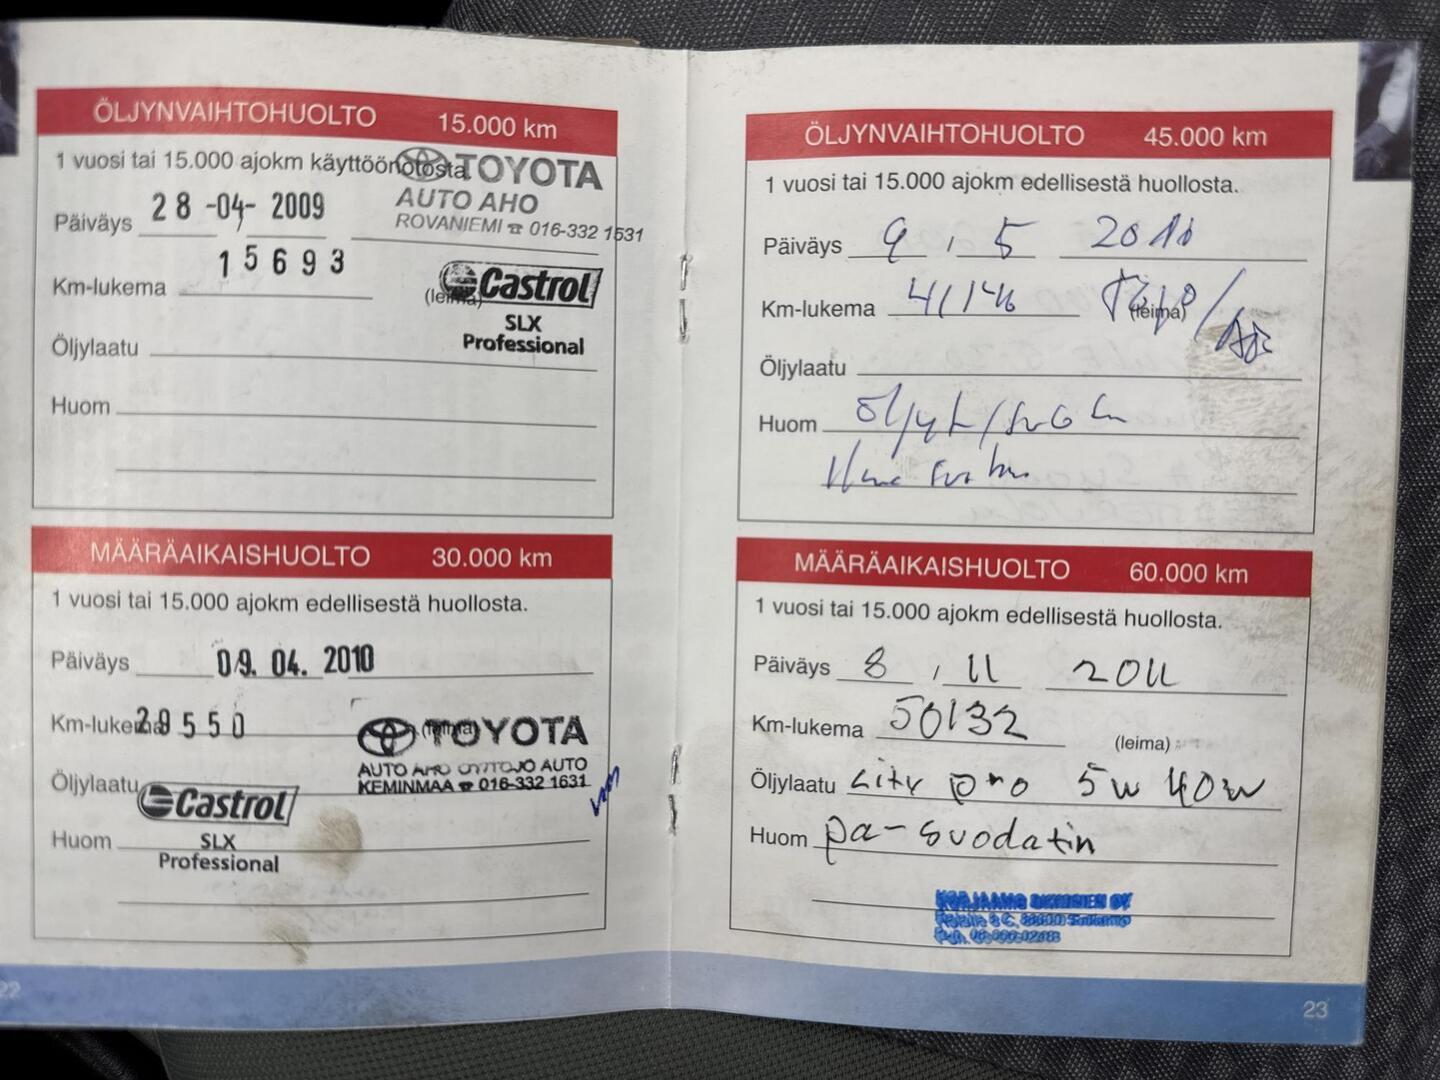 ÖLJYNVAIHTOHUOLTO 15.000 km
1 vuosi tai 15.000 ajokm käyttöönotosta.
TOYOTA
AUTO AHO
ROVANIEMI ☎ 016-332 1531
Päiväys 28 -04- 2009
Km-lukema 15693
(leima)
Castrol
SLX
Professional
Öljylaatu
Huom
MÄÄRÄAIKAISHUOLTO 30.000 km
1 vuosi tai 15.000 ajokm edellisestä huollosta.
Päiväys 09. 04. 2010
Km-lukema 29550
(leima)
TOYOTA
AUTO AHO AUTO
KEMINMAA ☎ 016-332 1631
Öljylaatu
Castrol
SLX
Professional
Huom
22
ÖLJYNVAIHTOHUOLTO 45.000 km
1 vuosi tai 15.000 ajokm edellisestä huollosta.
Päiväys 9 . 5
Km-lukema
(leima)
Öljylaatu
Huom
MÄÄRÄAIKAISHUOLTO 60.000 km
1 vuosi tai 15.000 ajokm edellisestä huollosta.
Päiväys 8 . 11 2011
Km-lukema 50132
(leima)
Öljylaatu city pro 5w 40w
Huom pa-suodatin
KORJAAMO OY
23